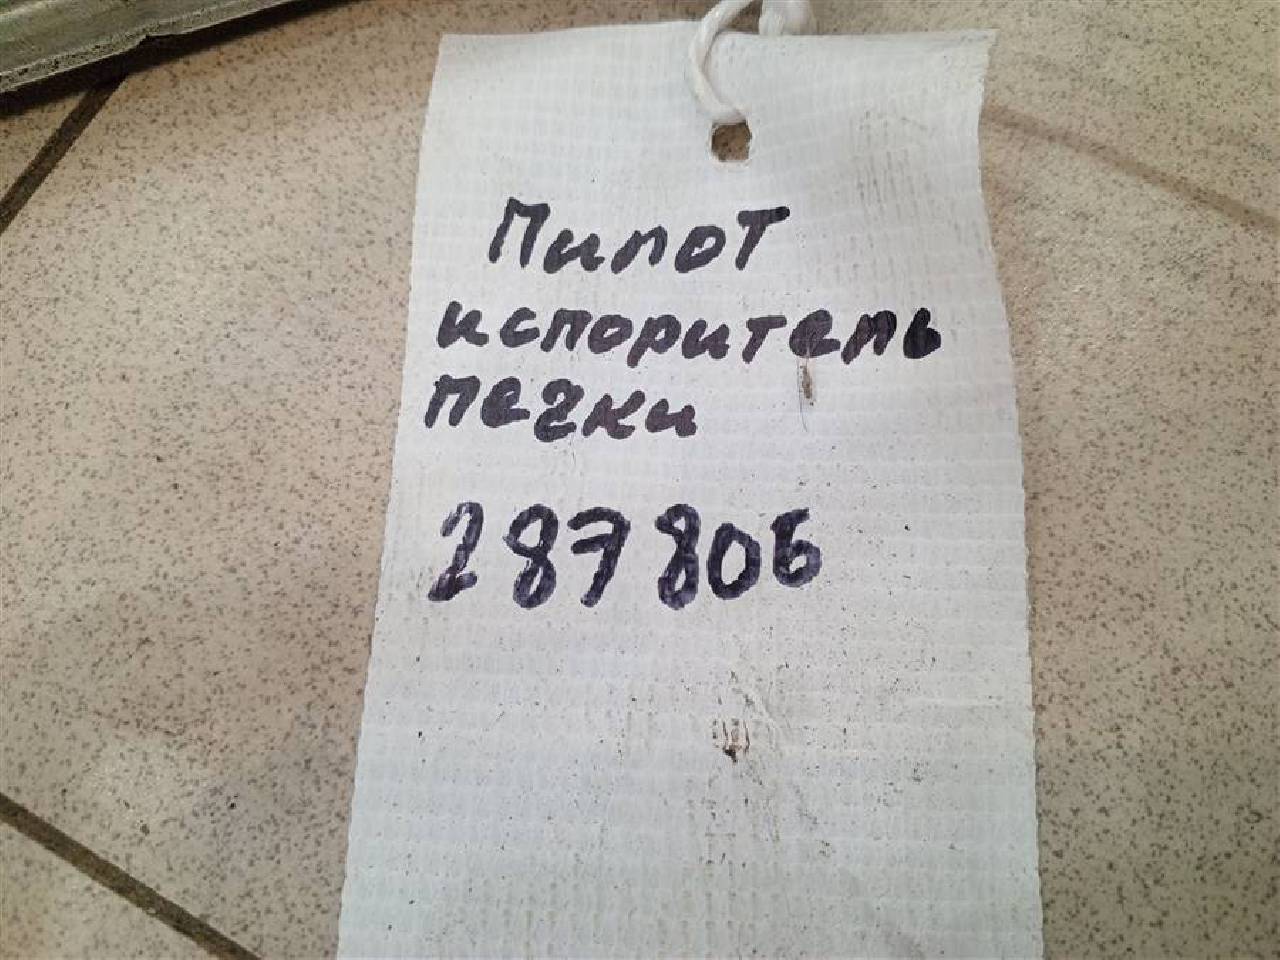 Пилот
испоритель
печки
287806